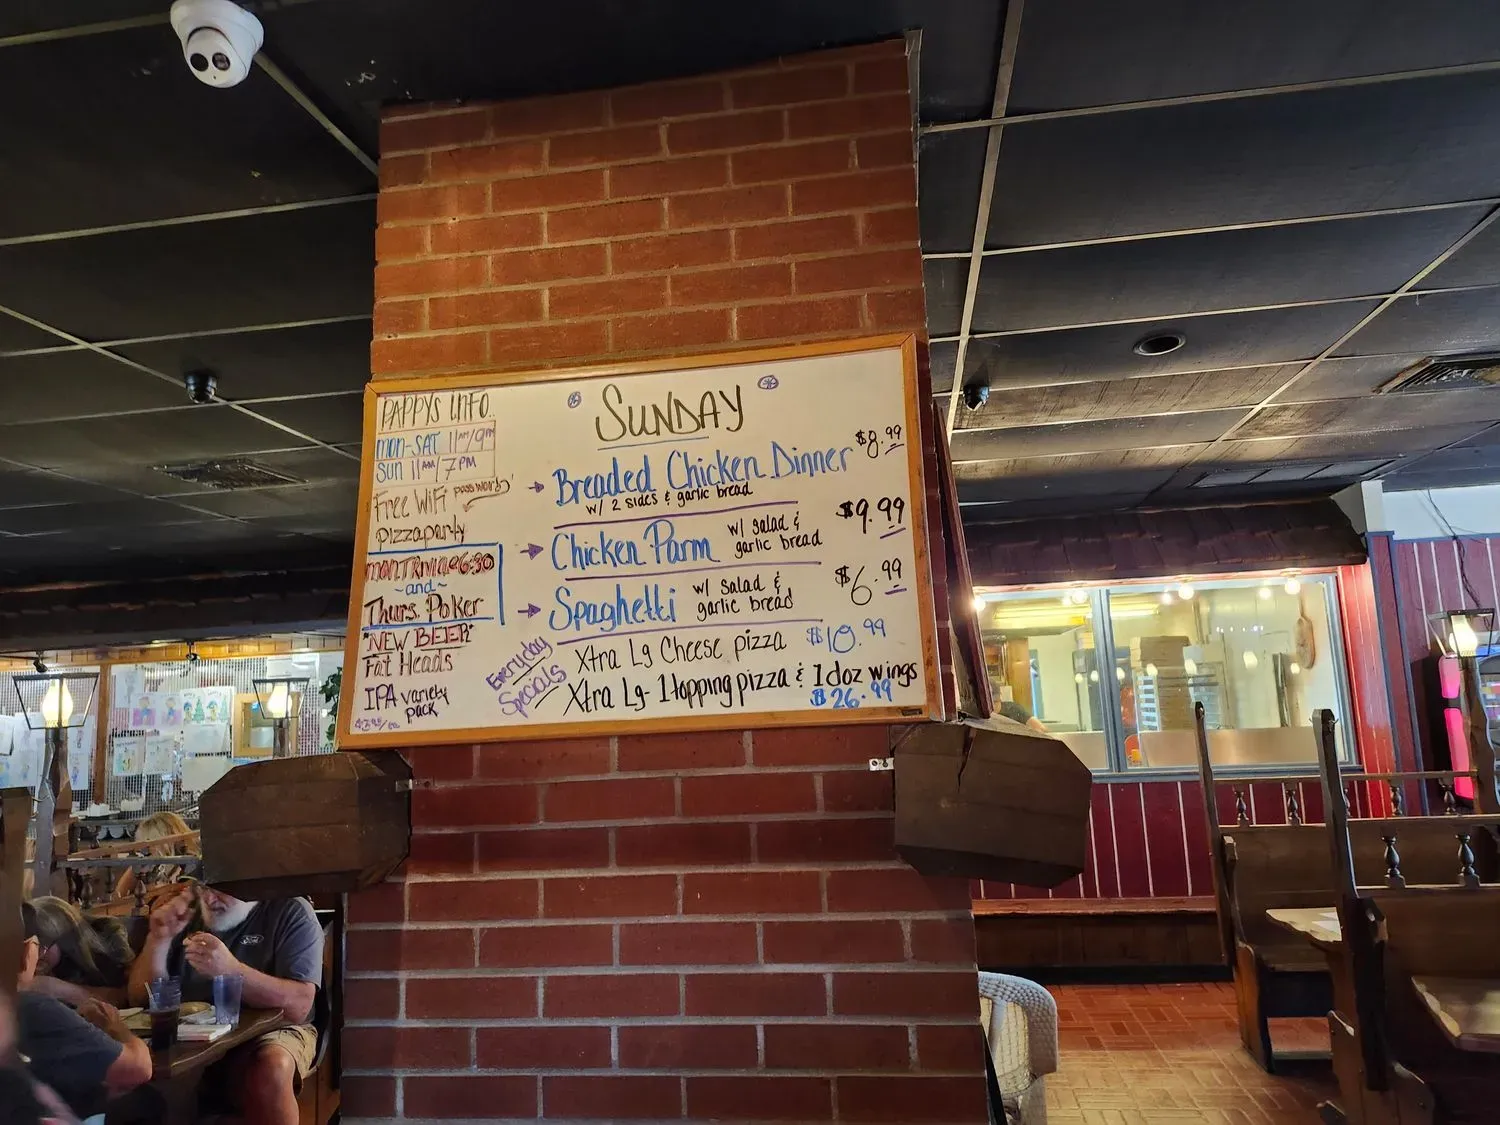 PAPPYS INFO..
mon-SAT 11AM/9PM
SUN 11AM/7PM
Free WiFi password
pizzaparty
mon TRIVIA@6:30
~and~
Thurs. Poker
"NEW BEER"
Fat Heads
IPA variety
pack
SUNDAY
→ Breaded Chicken Dinner $8.99
w/ 2 sides & garlic bread
→ Chicken Parm w/ salad &
garlic bread $9.99
→ Spaghetti w/ salad &
garlic bread $6.99
Everyday
Specials
Xtra Lg Cheese pizza $10.99
Xtra Lg-1topping pizza & 1doz wings
$26.99
Ford